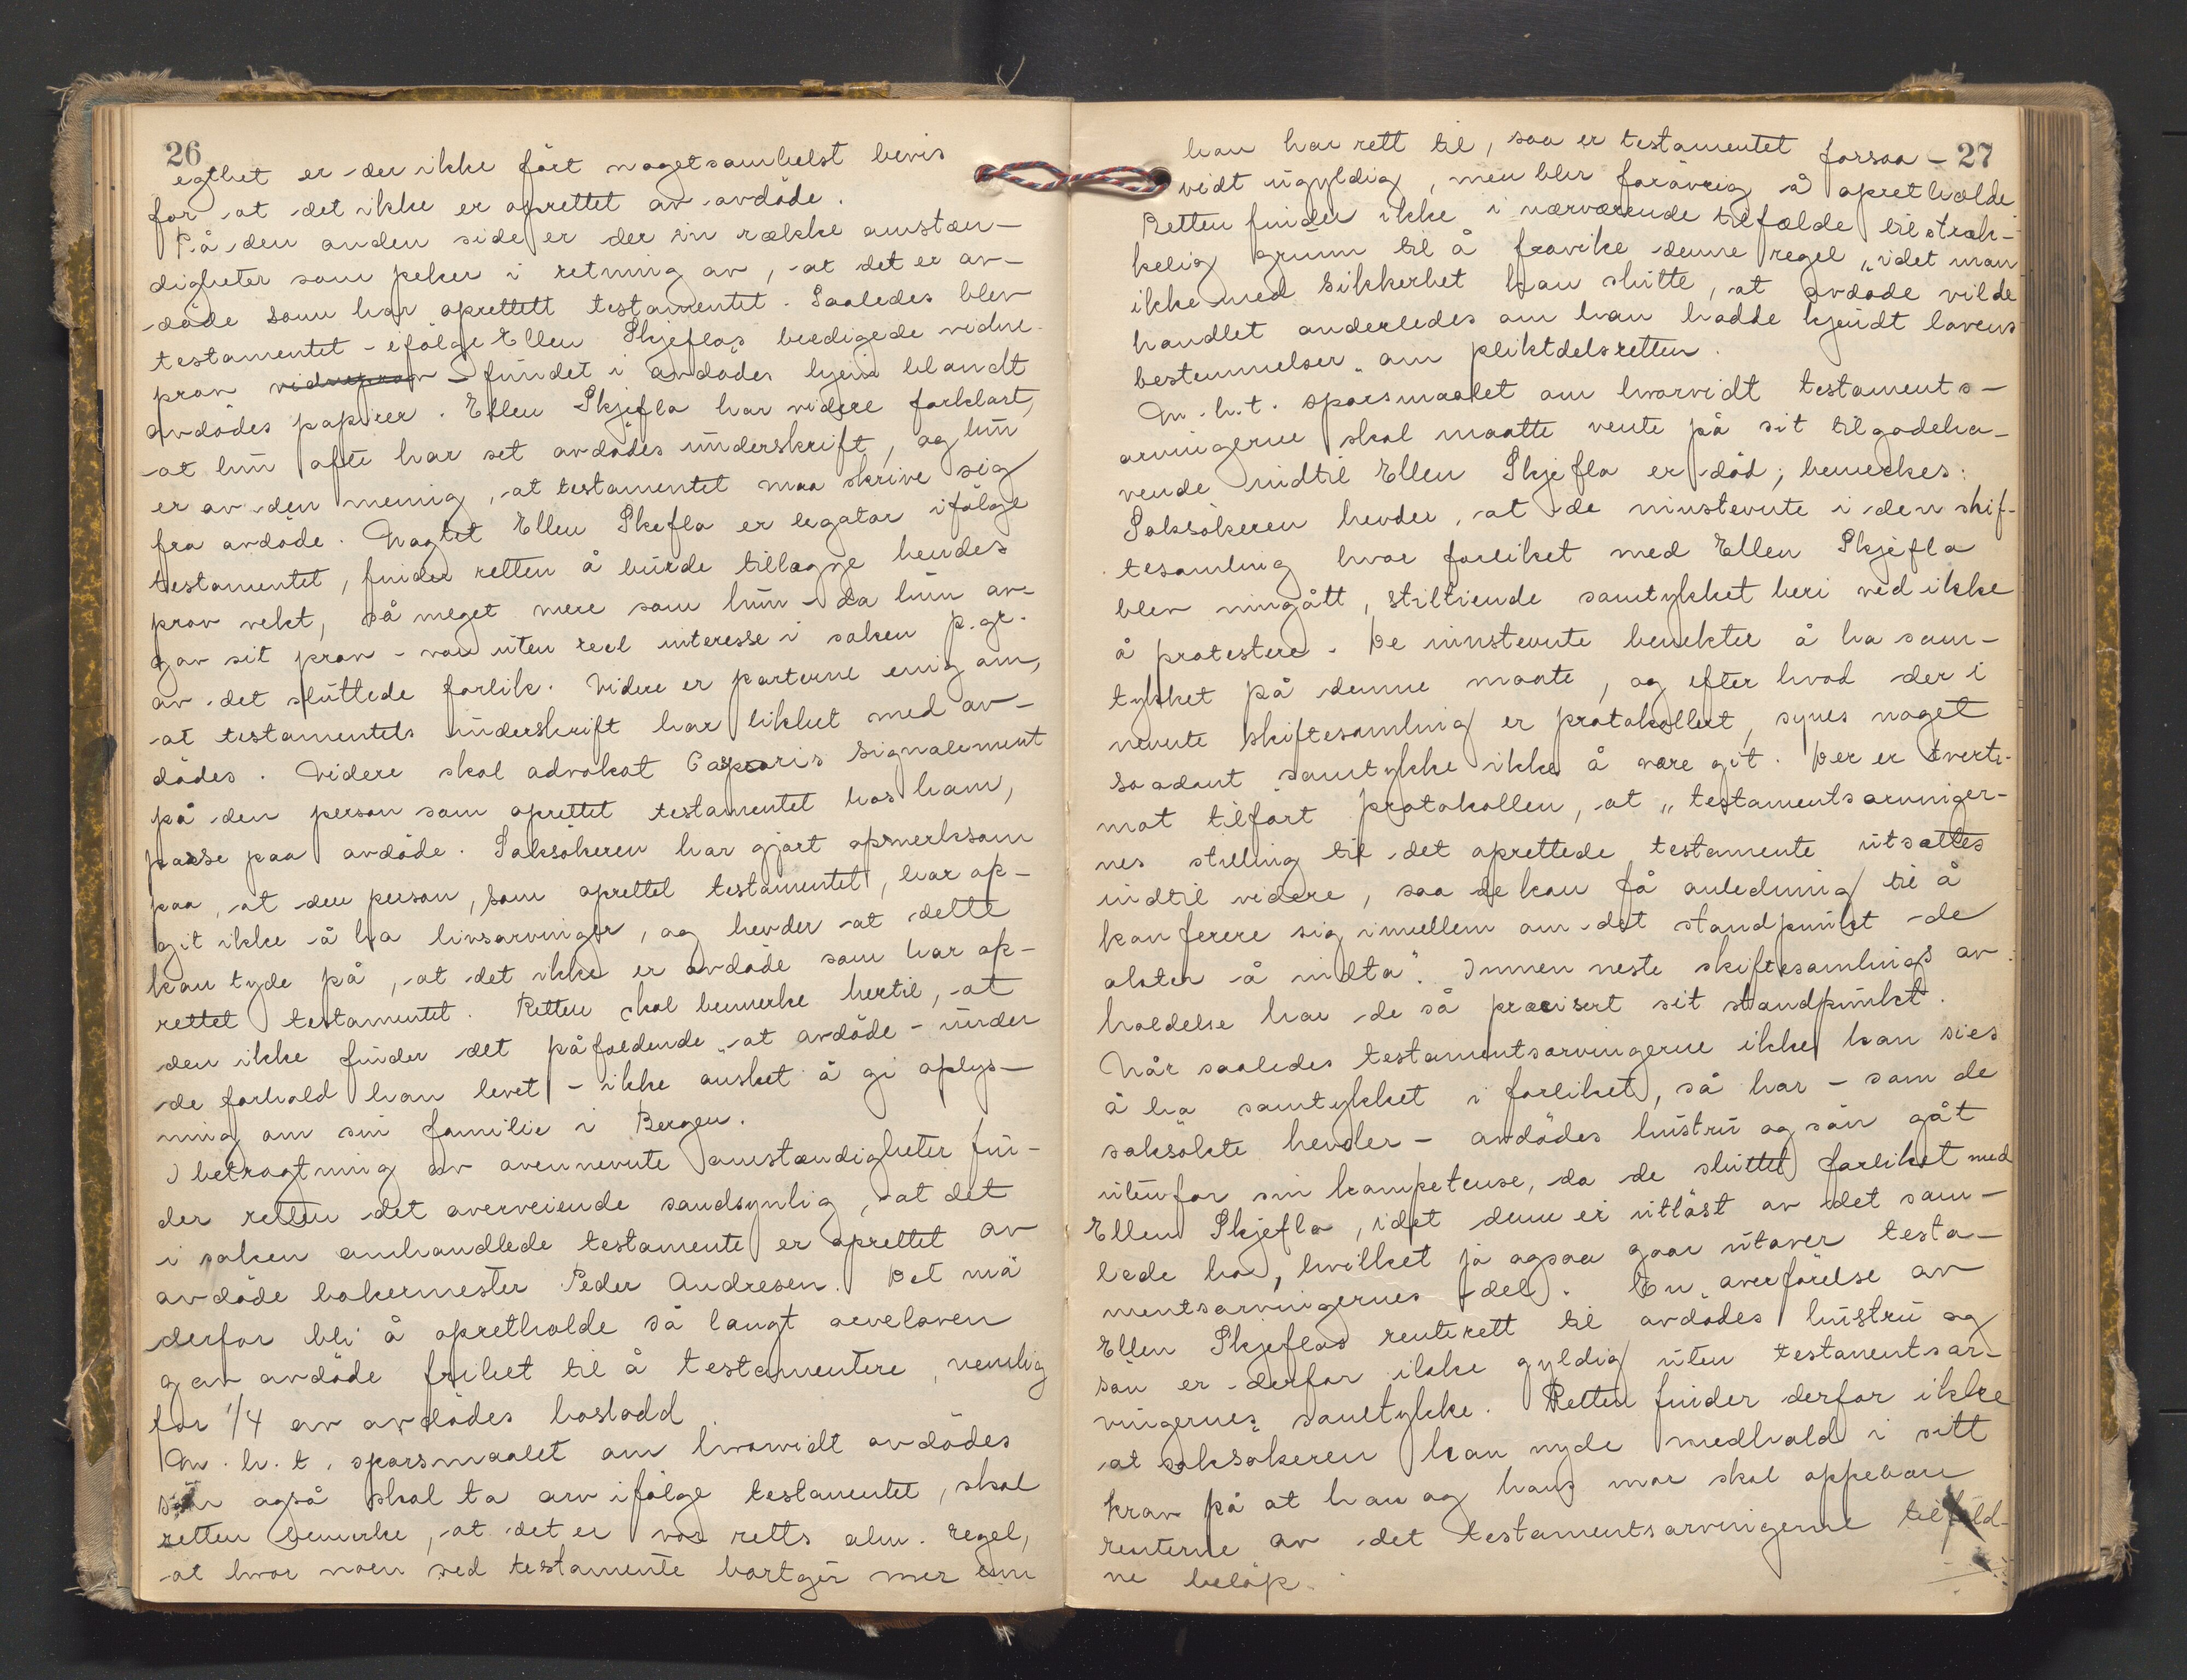 26
egthet er der ikke fört nogetsomhelst bevis
for at det ikke er oprettet av avdöde.
På den anden side er der en række omstæn-
digheter som peker i retning av, at det er av-
döde som har oprettett testamentet. Saaledes blev
testamentet - ifölge Ellen Skjeflos beedigede vidne-
prov vidneprov - fundet i avdödes hjem blandt
avdödes papirer. Ellen Skjeflo har videre forklart,
at hun ofte har set avdödes underskrift, og hun
er av den mening, at testamentet maa skrive sig
fra avdöde. Uagtet Ellen Skeflo er legatar ifölge
testamentet, finder retten å burde tillægge hendes
prov vekt, så meget mere som hun - da hun av-
gav sit prov - var uten reel interesse i saken p.gr.
av det sluttede forlik. Videre er parterne enig om,
at testamentets underskrift har likhet med av-
dödes. Videre skal advokat Casparis signalement
på den person som oprettet testamentet hos ham,
passe paa avdöde. Saksökeren har gjort opmerksom
paa, at den person, som oprettet testamentet, har op-
git ikke å ha livsarvinger, og hevder at dette
kan tyde på, at det ikke er avdöde som har op-
rettet testamentet. Retten skal bemerke hertil, at
den ikke finder det påfaldende, at avdöde - under
de forhold han levet - ikke önsket å gi oplys-
ning om sin familie i Bergen.
I betragtning av ovennevnte omstændigheter fin-
der retten det overveiende sandsynlig, at det
i saken omhandlede testamente er oprettet av
avdöde bakermester Peder Andresen. Det må
derfor bli å opretholde så langt arveloven
gav avdöde frihet til å testamentere, nemlig
for 1/4 av avdödes boslodd.
M.h.t. spörsmaalet om hvorvidt avdödes
sön også skal ta arv ifölge testamentet, skal
retten bemerke, at det er vor retts alm. regel,
at hvor noen ved testamente bortgir mer enn
27
han har rett til, saa er testamentet forsaa-
vidt ugyldig, men blir forövrig å opretholde
Retten finder ikke i nærværende tilfælde tilstræk-
kelig grunn til å fravike denne regel, idet man
ikke med sikkerhet kan slutte, at avdöde vilde
handlet anderledes om han hadde kjendt lovens
bestemmelser om pliktdelsretten.
M.h.t. spörsmaalet om hvorvidt testaments-
arvingerne skal maatte vente på sit tilgodeha-
vende indtil Ellen Skjeflo er död, bemerkes:
Saksökeren hevder, at de innstevnte i den skif-
tesamling hvor forliket med Ellen Skjeflo
blev inngått, stiltiende samtykket heri ved ikke
å protestere. De innstevnte benekter å ha sam-
tykket på denne maate, og efter hvad der i
nevnte skiftesamling er protokollert, synes noget
saadant samtykke ikke å være git. Der er tverti-
mot tilfört protokollen, at "testamentsarvinger-
nes stilling til det oprettede testamente utsættes
indtil videre, saa de kan få anledning til å
konferere sig imellem om det standpunkt de
akter å indta". Innen neste skiftesamlings av-
holdelse har de så præcisert sit standpunkt.
Når saaledes testamentsarvingerne ikke kan sies
å ha samtykket i forliket, så har - som de
saksökte hevder - avdödes hustru og sön gåt
utenfor sin kompetense, da de sluttet forliket med
Ellen Skjeflo, idet denne er utlöst av det sam-
lede bo, hvilket jo ogsaa gaar utover testa-
mentsarvingernes del. En overförelse av
Ellen Skjeflos renterett til avdödes hustru og
sön er derfor ikke gyldig uten testamentsar-
vingernes samtykke. Retten finder derfor ikke
at saksökeren kan nyde medhold i sitt
krav på at han og hans mor skal oppebære
renterne av det testamentsarvingerne tilfald-
ne belöp.